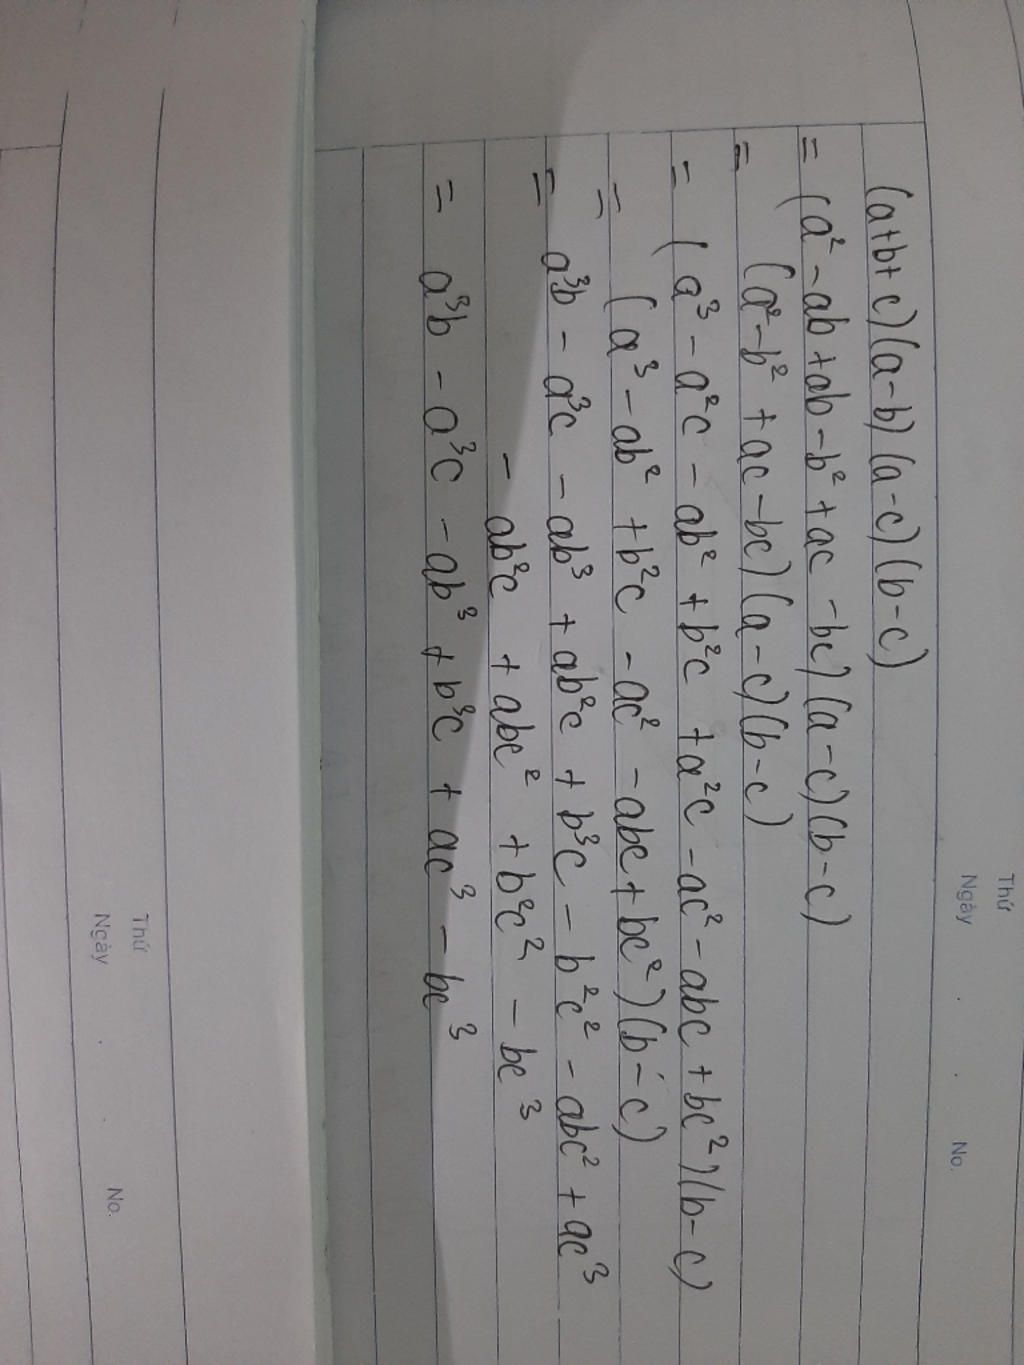 Thứ
Ngày No.
(a+b+c)(a-b)(a-c)(b-c)
= (a² - ab + ab - b² + ac - bc)(a-c)(b-c)
= (a² - b² + ac - bc)(a-c)(b-c)
= (a³ - a²c - ab² + b²c + a²c - ac² - abc + bc²)(b-c)
= (a³ - ab² + b²c - ac² - abc + bc²)(b-c)
= a³b - a³c - ab³ + ab²c + b³c - b²c² - abc² + ac³
- ab²c + abc² + b²c² - bc³
= a³b - a³c - ab³ + b³c + ac³ - bc³
Thứ
Ngày No.